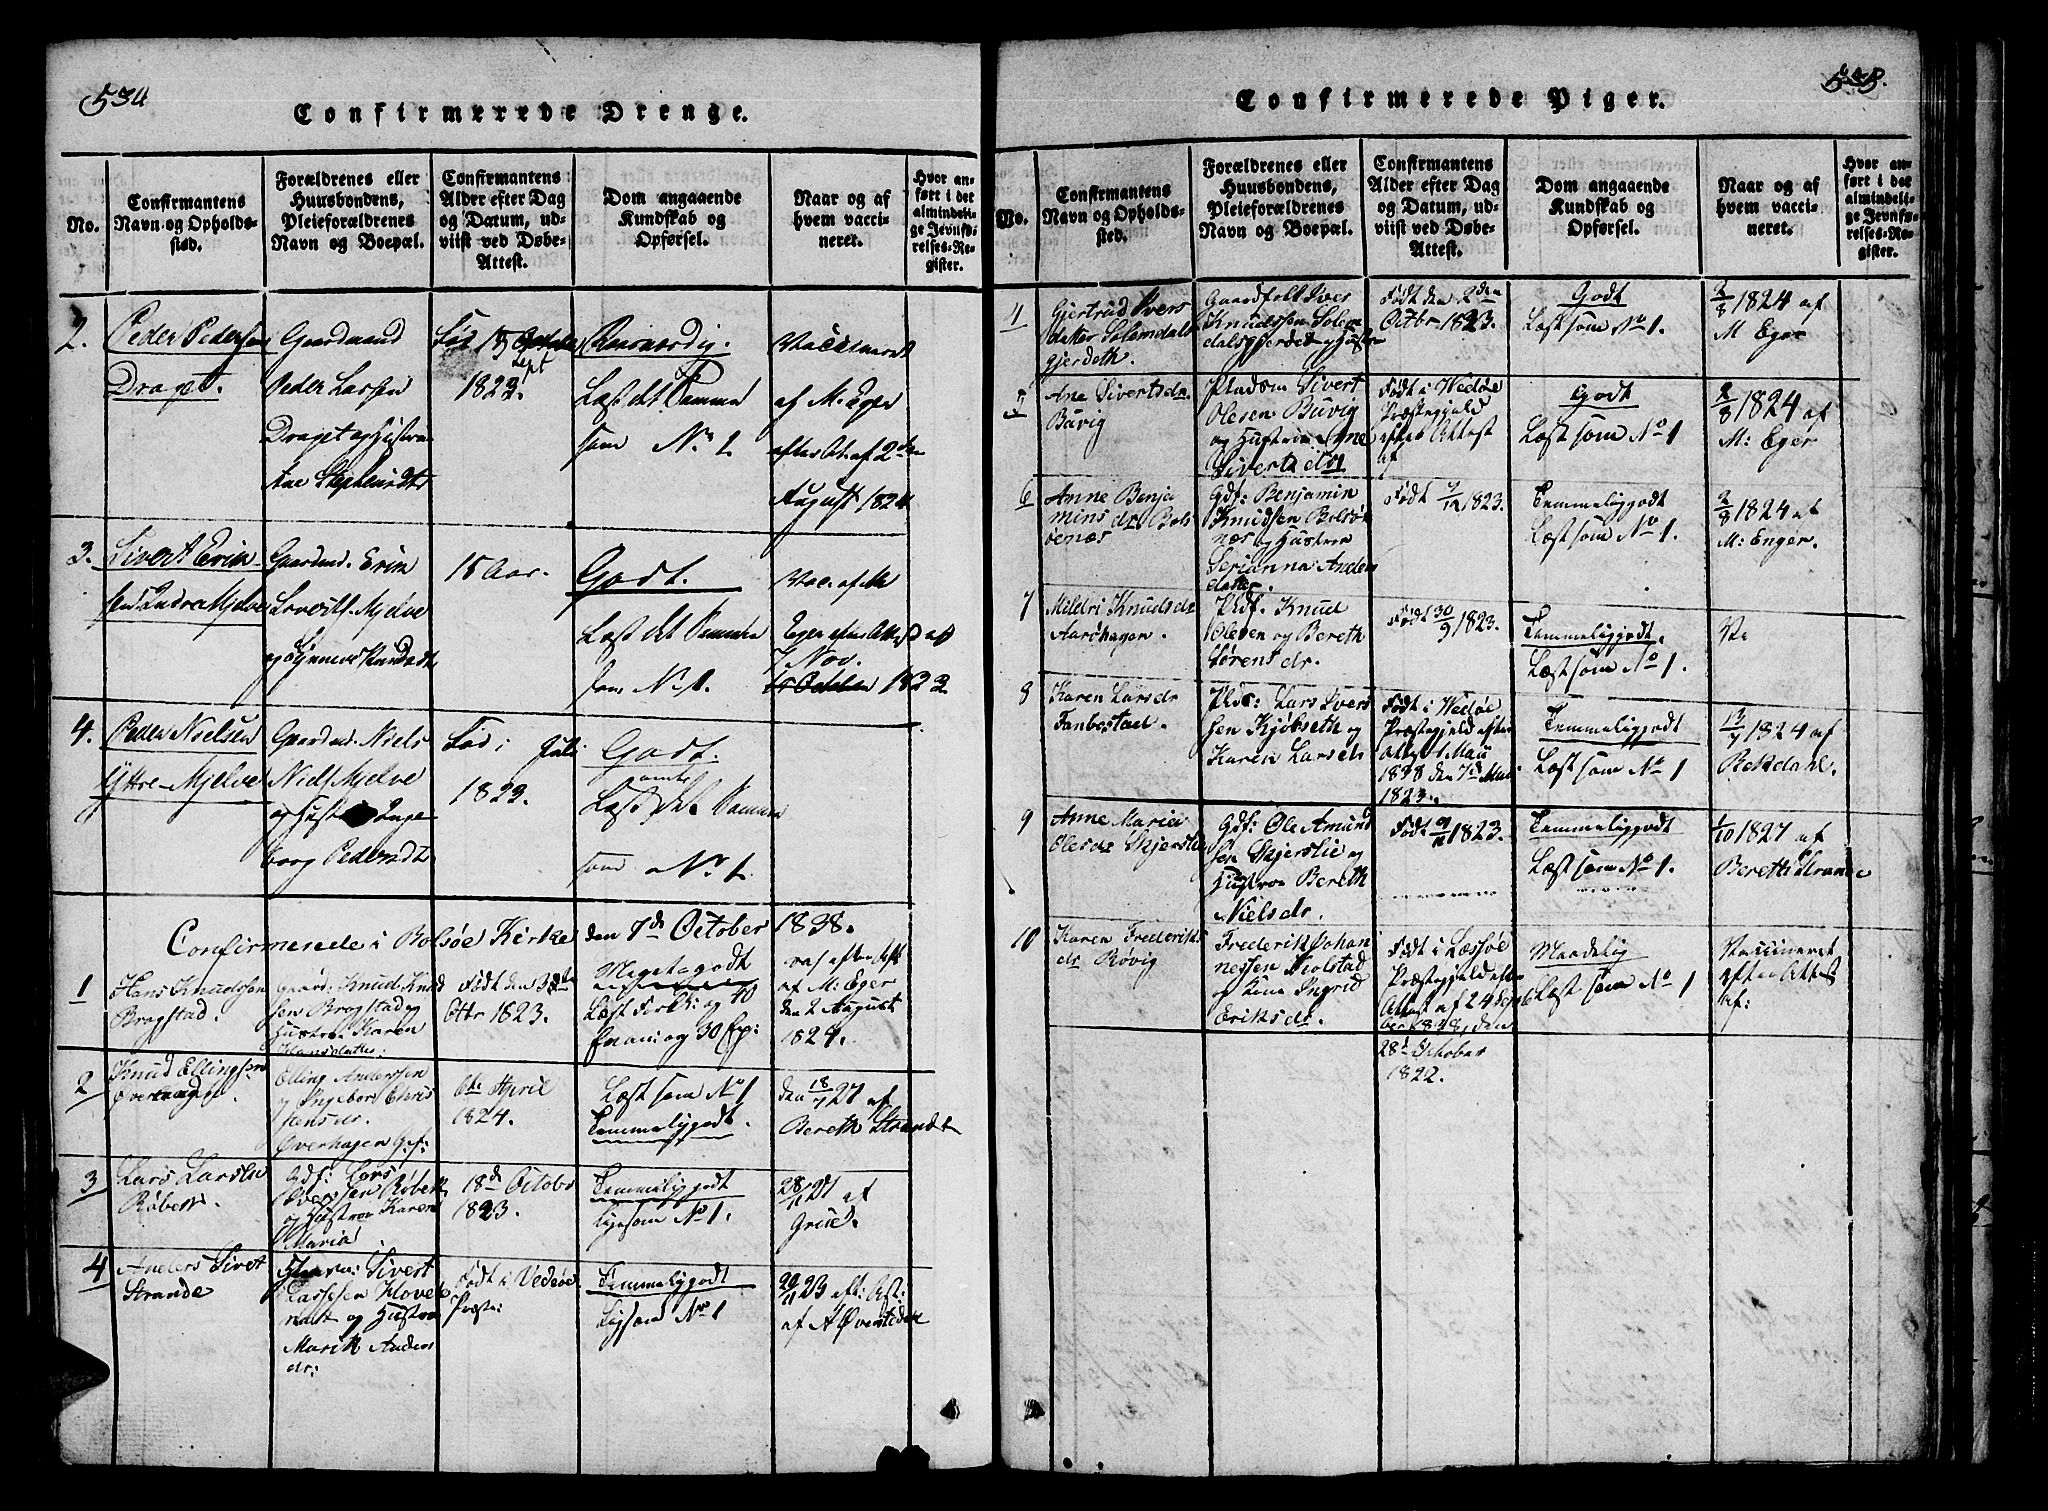 534
Confirmerede Drenge.
No.
Confirmantens
Navn og Opholds-
sted.
Forældrenes eller
Huusbondens,
Pleieforældrenes
Navn og Boepæl.
Confirmantens
Alder efter Dag
og Datum, ud-
viist ved Døbe-
Attest.
Dom angaaende
Kundskab og
Opførsel.
Naar og af
hvem vacci-
neret.
Hvor an-
ført i det
almindeli-
ge Jevnfø-
relses-Re-
gister.
2.
Peder Pedersen
Draget.
Gaardmand
Peder Lassen
Draget og Hustru
Ane
Fød 15
Sept
1823.
Læst det Samme
som No 1
Vaccineret
af M. Eger
efter At. af 2den
August 1824
3.
Sivert Erik-
sen Indre Mjelve
Gaardmd. Erik
Mjelve
og Synneve
15 Aar.
Godt.
Læst det Samme
som No 1.
Vac. af M
Eger efter Attest af
7 Nov.
1823
4.
Peder Nielsen
Yttre-Mjelve
Gaardmd. Niels
Niels Mjelve
og Hustru Inge
borg Pedersdt
Fød i Juli
1823.
Godt.
Læst det Samme
som No 1.
Confirmerede i Bolsøe Kirke den 7de October 1838.
1
Hans Knudssen
Brogstad.
Gaard: Knud Knud
sen Brogstad og
Hustru Karen
Hansdatter.
Født den 3de
Octbr 1823.
Megetgodt
og 30 Ep:
vac. efter Att
af M: Eger
den 2 August
1824.
2
Knud Ellingsen
Overhage.
Elling Anderssen
og Ingebor Chris
tensdr.
Overhagen G.f:
6te April
1824.
Læst som No 1
Temmeliggodt.
den 18/7 27 af
Bereth Strande
3
Lars Larsen
Røbek.
Gdf: Lars
Iverssen Røbek
og Hustrue Karen
Maria
18de Octobr
1823.
Temmeliggodt
ligesom No 1.
28/11 27 af
Grüe.
4
Anders Sivert
Strande
Sivert
Lassen
og Hustru
Marit Anders
dr:
Født i Vedøe
Præste:
Temmeliggodt
Ligesom No 1
29/11 23 eft: Att:
af A Øverstiden
Confirmerede Piger.
535.
No.
Confirmantens
Navn og Opholds-
sted.
Forældrenes eller
Huusbondens,
Pleieforældrenes
Navn og Boepæl.
Confirmantens
Alder efter Dag
og Datum, ud-
viist ved Døbe-
Attest.
Dom angaaende
Kundskab og
Opførsel.
Naar og af
hvem vacci-
neret.
Hvor an-
ført i det
almindeli-
ge Jevnfø-
relses-Re-
gister.
4
Gjertrud Ivers
datter Solemdals
gjerdeth.
Gaardfolk Iver
Knudssen Solem
dalsgjerdet og Hustru
Født den 2den
Octbr 1823.
Godt
Læst som No 1.
2/8 1824 af
M Eger
5
Ane Sivertsdr
Buvig
Pladsm Sivert
Olesen Buvig
og Hustrue Ane
Sivertsdr
Født i Wedøe
Præstegjeld
efter Attest
af
Godt
Læst som No 1
2/8 1824 af
M: Eger
6
Anne Benja
mins dr Bols
øenæs
Gdf: Benjamin
Knudsen Bolsø
næs og Hustrue
Serianna Anders
datter.
Født 9/12 1823.
Temmeliggodt
Læst som No 1.
2/8 1824 af
M: Enger.
7
Mildri Knudsdr
Aarøhagen.
Pldf. Knud
Olesen og Bereth
Sørensdr.
Født 30/9 1823.
Temmeliggodt.
Læst som No 1.
Va
8
Karen Larsdr
Fanbostad.
Plds: Lars Ivers
sen Kjøbseth og
Karen Larsdr
Født i Wedøe
Præstegjeld efter
Attest 1 Maii
1838 den 7de Mai
1823.
Temmeliggodt
Læst som No 1
13/7 1824 af
Rekdahl.
9
Anne Marie
Olesdr Skjerslie
Gdf: Ole Amund
sen Skjerslie og
Hustrue Bereth
Nielsdr.
Født 9/11 1823.
Temmeliggodt
Læst som No 1.
1/10 1827 af
Bereth Strande
10
Karen Frederiks
dr Røvig
Frederik Johan
nessen Kiolstad
og Kone Ingrid
Eriksdr.
Født i Læssøe
Præstegjeld efter
Attest af 24 Sep
ber 1838, den
28de October
1822.
Maadelig
Læst som No 1
Vaccineret
efter Attest
af: